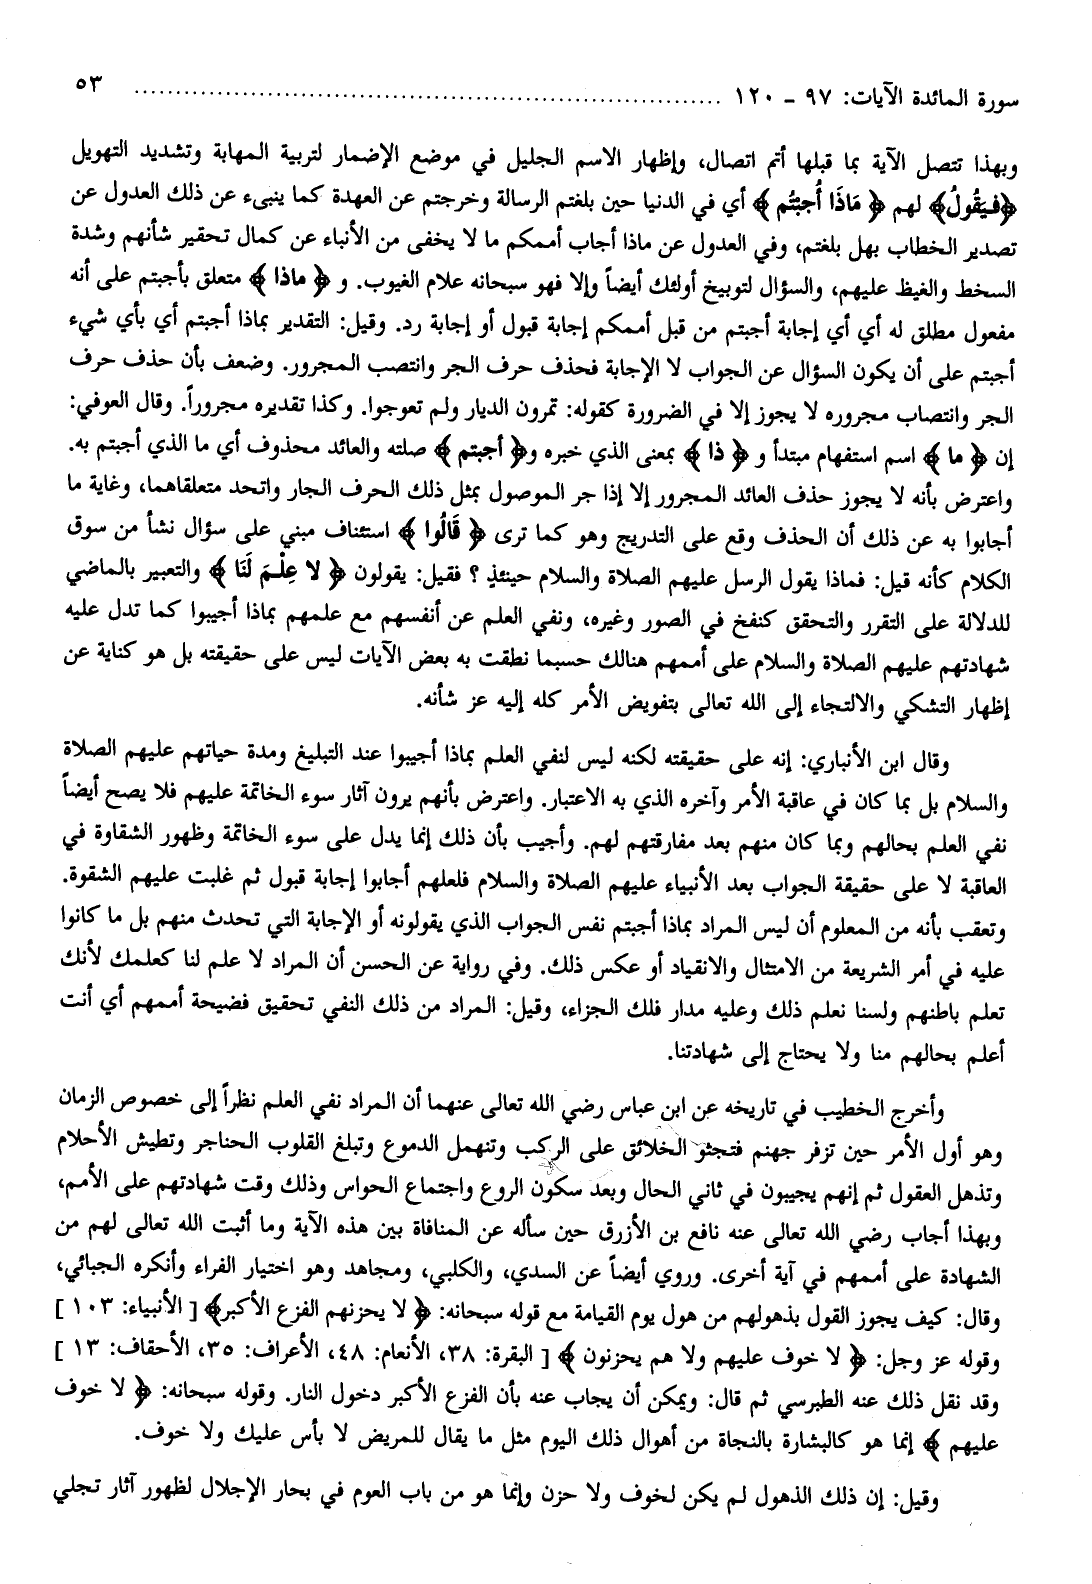 سورة المائدة الآيات: ٩٧ ـ ١٢٠ ........................................................................ ٥٣
وبهذا تتصل الآية بما قبلها أتم اتصال، وإظهار الاسم الجليل في موضع الإضمار لتربية المهابة وتشديد التهويل
﴿فَيَقُولُ﴾ لهم ﴿ مَاذَا أُجِبْتُم ﴾ أي في الدنيا حين بلغتم الرسالة وخرجتم عن العهدة كما ينبىء عن ذلك العدول عن
تصدير الخطاب بهل بلغتم، وفي العدول عن ماذا أجاب أممكم ما لا يخفى من الأنباء عن كمال تحقير شأنهم وشدة
السخط والغيظ عليهم، والسؤال لتوبيخ أولئك أيضاً وإلا فهو سبحانه علام الغيوب. و ﴿ ماذا ﴾ متعلق بأجبتم على أنه
مفعول مطلق له أي أي إجابة أجبتم من قبل أممكم إجابة قبول أو إجابة رد. وقيل: التقدير بماذا أجبتم أي بأي شيء
أجبتم على أن يكون السؤال عن الجواب لا الإجابة فحذف حرف الجر وانتصب المجرور. وضعف بأن حذف حرف
الجر وانتصاب مجروره لا يجوز إلا في الضرورة كقوله: تمرون الديار ولم تعوجوا. وكذا تقديره مجروراً. وقال العوفي:
إن ﴿ ما ﴾ اسم استفهام مبتدأ و ﴿ ذا ﴾ بمعنى الذي خبره و﴿ أجبتم ﴾ صلته والعائد محذوف أي ما الذي أجبتم به.
واعترض بأنه لا يجوز حذف العائد المجرور إلا إذا جر الموصول بمثل ذلك الحرف الجار واتحد متعلقاهما، وغاية ما
أجابوا به عن ذلك أن الحذف وقع على التدريج وهو كما ترى ﴿ قَالُوا ﴾ استئناف مبني على سؤال نشأ من سوق
الكلام كأنه قيل: فماذا يقول الرسل عليهم الصلاة والسلام حينئذٍ ؟ فقيل: يقولون ﴿ لا عِلْمَ لَنَا ﴾ والتعبير بالماضي
للدلالة على التقرر والتحقق كنفخ في الصور وغيره، ونفي العلم عن أنفسهم مع علمهم بماذا أجيبوا كما تدل عليه
شهادتهم عليهم الصلاة والسلام على أممهم هنالك حسبما نطقت به بعض الآيات ليس على حقيقته بل هو كناية عن
إظهار التشكي والالتجاء إلى الله تعالى بتفويض الأمر كله إليه عز شأنه.
وقال ابن الأنباري: إنه على حقيقته لكنه ليس لنفي العلم بماذا أجيبوا عند التبليغ ومدة حياتهم عليهم الصلاة
والسلام بل بما كان في عاقبة الأمر وآخره الذي به الاعتبار. واعترض بأنهم يرون آثار سوء الخاتمة عليهم فلا يصح أيضاً
نفي العلم بحالهم وبما كان منهم بعد مفارقتهم لهم. وأجيب بأن ذلك إنما يدل على سوء الخاتمة وظهور الشقاوة في
العاقبة لا على حقيقة الجواب بعد الأنبياء عليهم الصلاة والسلام فلعلهم أجابوا إجابة قبول ثم غلبت عليهم الشقوة.
وتعقب بأنه من المعلوم أن ليس المراد بماذا أجبتم نفس الجواب الذي يقولونه أو الإجابة التي تحدث منهم بل ما كانوا
عليه في أمر الشريعة من الامتثال والانقياد أو عكس ذلك. وفي رواية عن الحسن أن المراد لا علم لنا كعلمك لأنك
تعلم باطنهم ولسنا نعلم ذلك وعليه مدار فلك الجزاء، وقيل: المراد من ذلك النفي تحقيق فضيحة أممهم أي أنت
أعلم بحالهم منا ولا يحتاج إلى شهادتنا.
وأخرج الخطيب في تاريخه عن ابن عباس رضي الله تعالى عنهما أن المراد نفي العلم نظراً إلى خصوص الزمان
وهو أول الأمر حين تزفر جهنم فتجثو الخلائق على الركب وتنهمل الدموع وتبلغ القلوب الحناجر وتطيش الأحلام
وتذهل العقول ثم إنهم يجيبون في ثاني الحال وبعد سكون الروع واجتماع الحواس وذلك وقت شهادتهم على الأمم،
وبهذا أجاب رضي الله تعالى عنه نافع بن الأزرق حين سأله عن المنافاة بين هذه الآية وما أثبت الله تعالى لهم من
الشهادة على أممهم في آية أخرى. وروي أيضاً عن السدي، والكلبي، ومجاهد وهو اختيار الفراء وأنكره الجبائي،
وقال: كيف يجوز القول بذهولهم من هول يوم القيامة مع قوله سبحانه: ﴿ لا يحزنهم الفزع الأكبر﴾ [ الأنبياء: ١٠٣ ]
وقوله عز وجل: ﴿ لا خوف عليهم ولا هم يحزنون ﴾ [ البقرة: ٣٨، الأنعام: ٤٨، الأعراف: ٣٥، الأحقاف: ١٣ ]
وقد نقل ذلك عنه الطبرسي ثم قال: ويمكن أن يجاب عنه بأن الفزع الأكبر دخول النار. وقوله سبحانه: ﴿ لا خوف
عليهم ﴾ إنما هو كالبشارة بالنجاة من أهوال ذلك اليوم مثل ما يقال للمريض لا بأس عليك ولا خوف.
وقيل: إن ذلك الذهول لم يكن لخوف ولا حزن وإنما هو من باب العوم في بحار الإجلال لظهور آثار تجلي